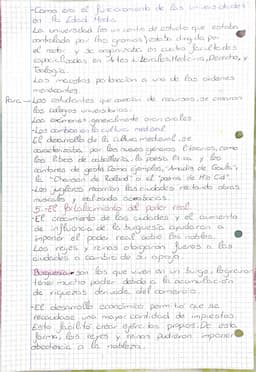 - Como era el funcionamiento de las universidades
en la Edad Media
La universidad era un centro de estudio que estaba
controlado por los gremios, estaba dirigida por
el rector y se organizaba en cuatro facultades
especializadas en Artes Liberales, Medicina, Derecho, y
Teología.
Los maestros pertenecían a una de las órdenes
mendicantes.
Para los estudiantes que carecían de recursos, se crearon
los colegios universitarios.
Los exámenes generalmente eran orales.
- Los cambios en la cultura medieval
El desarrollo de la cultura medieval, se
caracterizaba por los nuevos géneros literarios, como
los libros de caballería, la poesía lírica y los
cantares de gesta. Como ejemplos, "Amadís de Gaula",
la "Chanson de Roland" o el "poema de Mio Cid".
- Los juglares recorrían las ciudades recitando obras
musicales y realizando acrobacias.
5.- El fortalecimiento del poder real
- El crecimiento de las ciudades y el aumento
de influencia de la burguesía ayudaron a
imponer el poder real sobre los nobles.
Los reyes y reinas otorgaron fueros a las
ciudades a cambio de su apoyo.
Burguesía son los que viven en un burgo, lograron
tener mucho poder debido a la acumulación
de riquezas derivada del comercio.
- El desarrollo económico permitía que se
recaudase una mayor cantidad de impuestos.
Esto facilitó crear ejércitos propios. De esta
forma, los reyes y reinas pudieron imponer
obediencia a la nobleza.